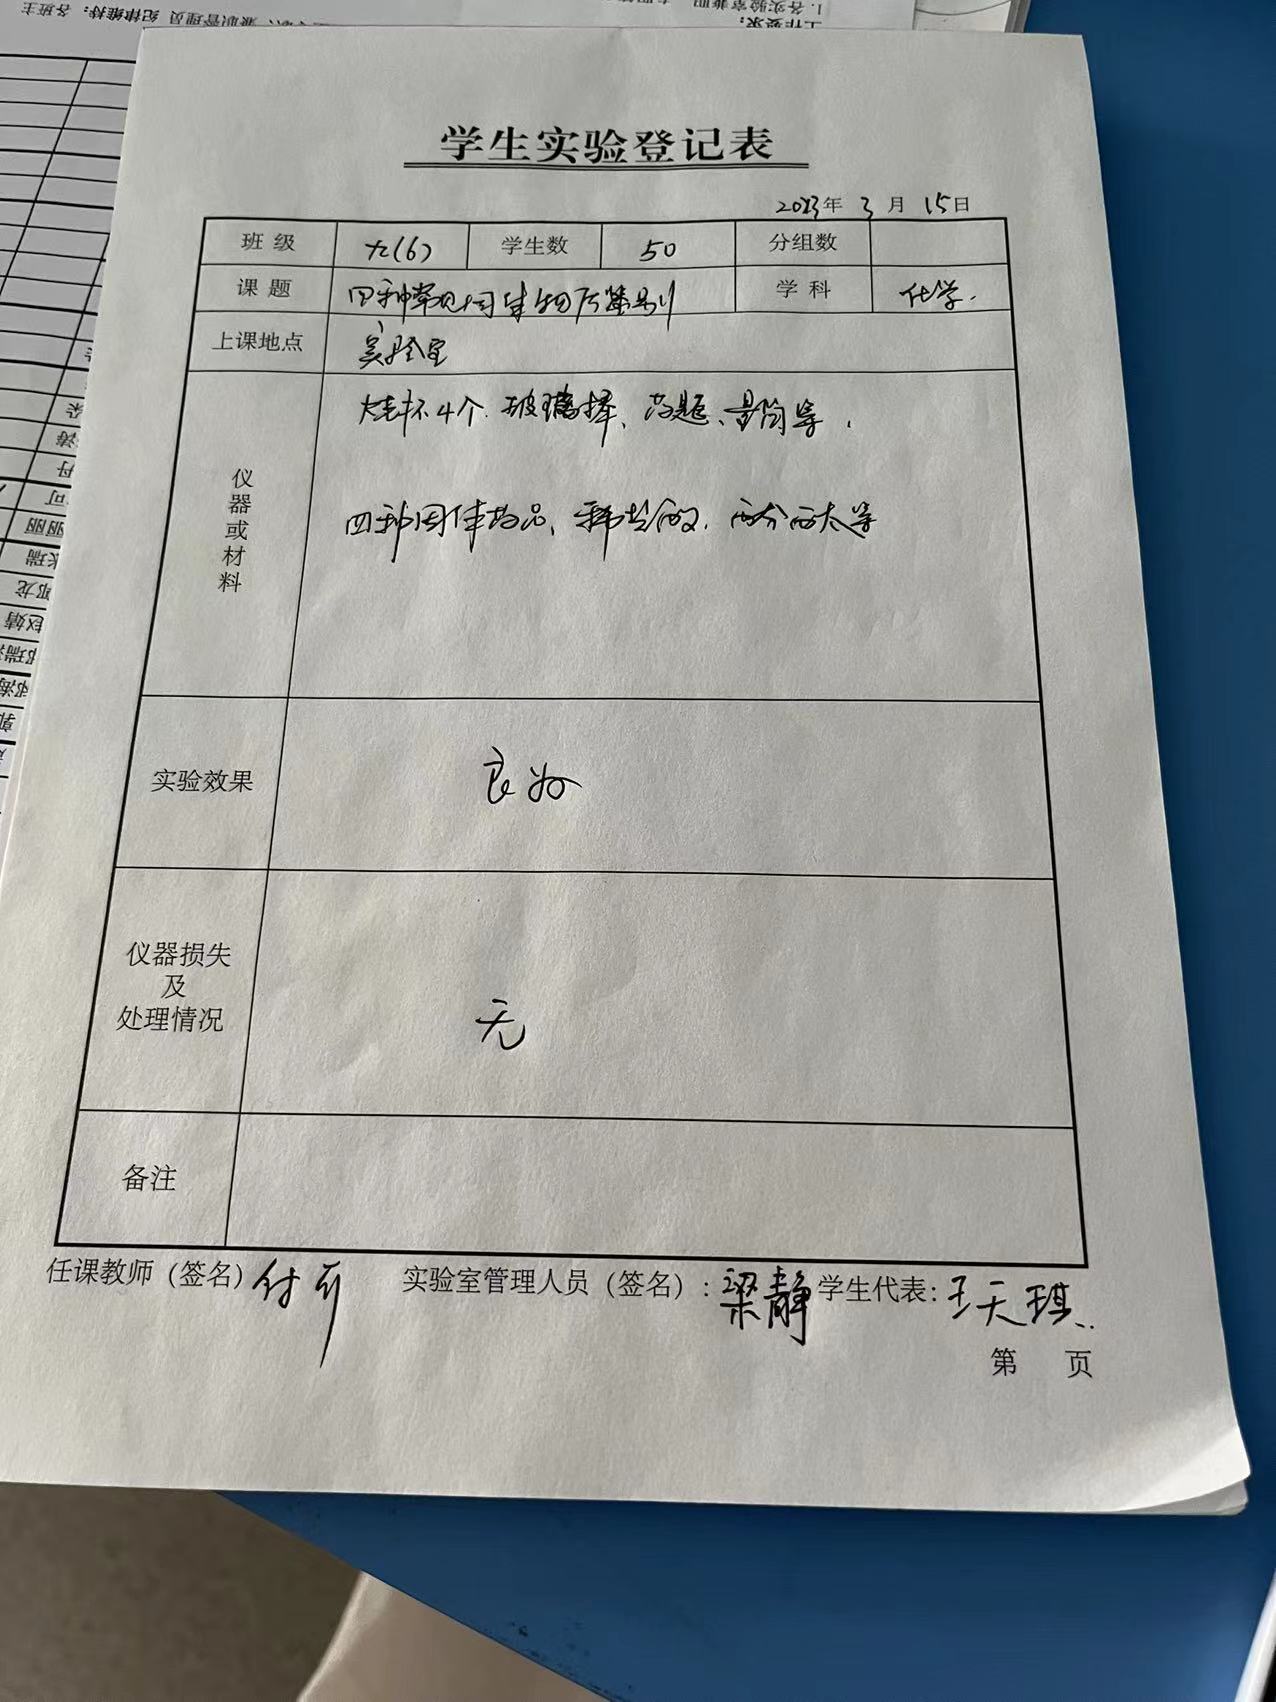 学生实验登记表
2023年 3月 15日
班级 九(6) 学生数 50 分组数
课题 四种常见固体物质鉴别 学科 化学.
上课地点 实验室
仪器或材料
大烧杯4个. 玻璃棒、药匙、量筒等.
四种固体药品、稀盐酸. 酚酞等
实验效果 良好
仪器损失
及
处理情况
无
备注
任课教师(签名) 付 实验室管理人员(签名): 梁静 学生代表: 王天琪..
第 页
工作要求:
丽丽
张瑞
赵婧